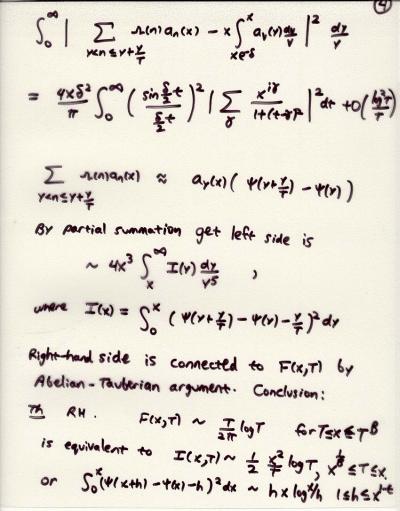 ④
∫_0^∞ | Σ_{y<n≤y+y/T} Λ(n)a_n(x) − x ∫_{xe^{-δ}}^x a_v(y) dv/v |^2 dy/y
= 4xδ^2/π ∫_0^∞ ( sin δ/2 t / δ/2 t )^2 | Σ_γ x^{iγ}/1+(t-γ)^2 |^2 dt + O( log^2 T/T )
Σ_{y<n≤y+y/T} Λ(n)a_n(x) ≈ a_y(x) ( Ψ(y+y/T) − Ψ(y) )
By partial summation get left side is
~ 4x^3 ∫_x^∞ I(y) dy/y^5 ,
where I(x) = ∫_0^x ( Ψ(y+y/T) − Ψ(y) − y/T )^2 dy
Right-hand side is connected to F(x,T) by
Abelian-Tauberian argument. Conclusion:
Th RH. F(x,T) ~ T/2π log T for T≤x≤T^B
is equivalent to I(x,T) ~ 1/2 x^2/T log T, x^{1/B} ≤T≤x
or ∫_0^x (Ψ(x+h) − Ψ(x) − h)^2 dx ~ h x log x/h 1≤h≤x^{1-ε}